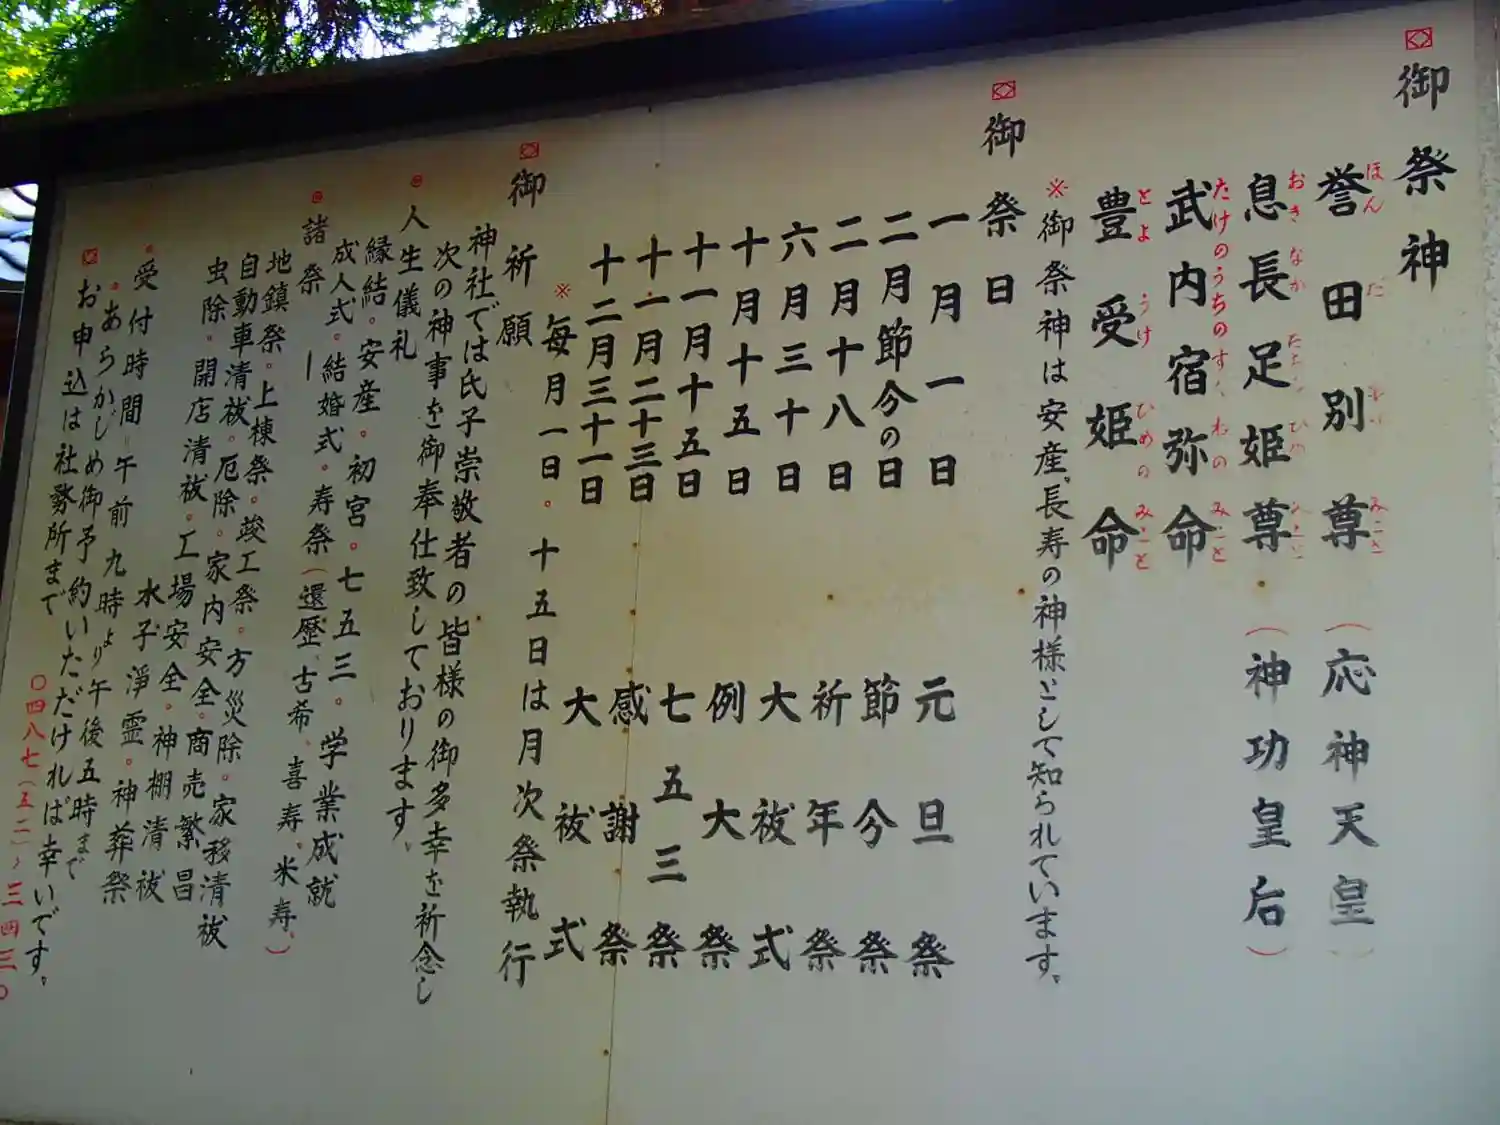 御祭神
誉田別尊（応神天皇）
ほんだわけみこと
息長足姫尊（神功皇后）
おきながたらしひめみこと
武内宿弥命
たけのうちのすくねのみこと
豊受姫命
とようけひめのみこと
※御祭神は安産、長寿の神様として知られています。
御祭日
一月一日 元旦祭
二月節分の日 節分祭
二月十八日 祈年祭
六月三十日 大祓式
十月十五日 例大祭
十一月十五日 七五三祭
十一月二十三日 感謝祭
十二月三十一日 大祓式
※毎月一日。十五日は月次祭執行
御祈願
神社では氏子崇敬者の皆様の御多幸を祈念し
次の神事を御奉仕致しております。
人生儀礼
縁結。安産。初宮。七五三。学業成就
成人式。結婚式。寿祭（還歴、古希、喜寿、米寿、）
諸祭
地鎮祭。上棟祭。竣工祭。方災除。家移清祓
自動車清祓。厄除。家内安全。商売繁昌
虫除。開店清祓。工場安全。神棚清祓
水子浄霊。神葬祭
受付時間 午前九時より午後五時まで
あらかじめ御予約いただければ幸いです。
お申込は社務所まで
〇四八七（五二）三四三〇